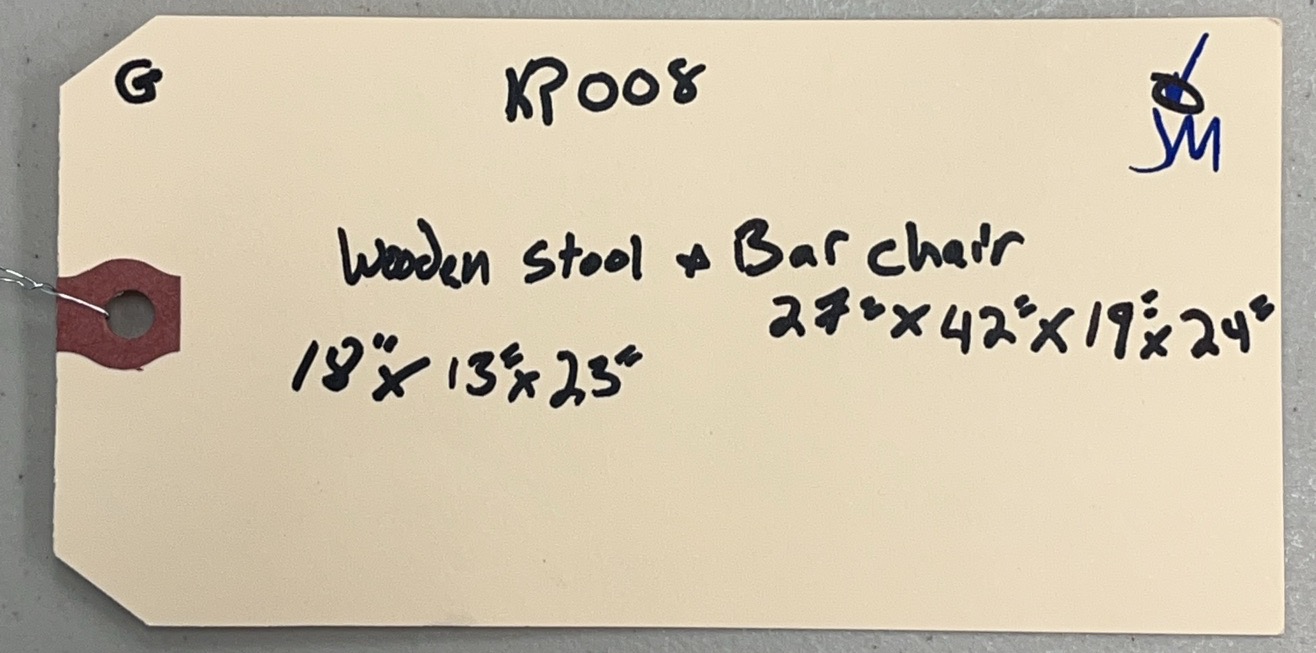 G KP008
JM
Wooden stool & Bar chair
27" x 42" x 19" x 24"
18" x 13" x 23"